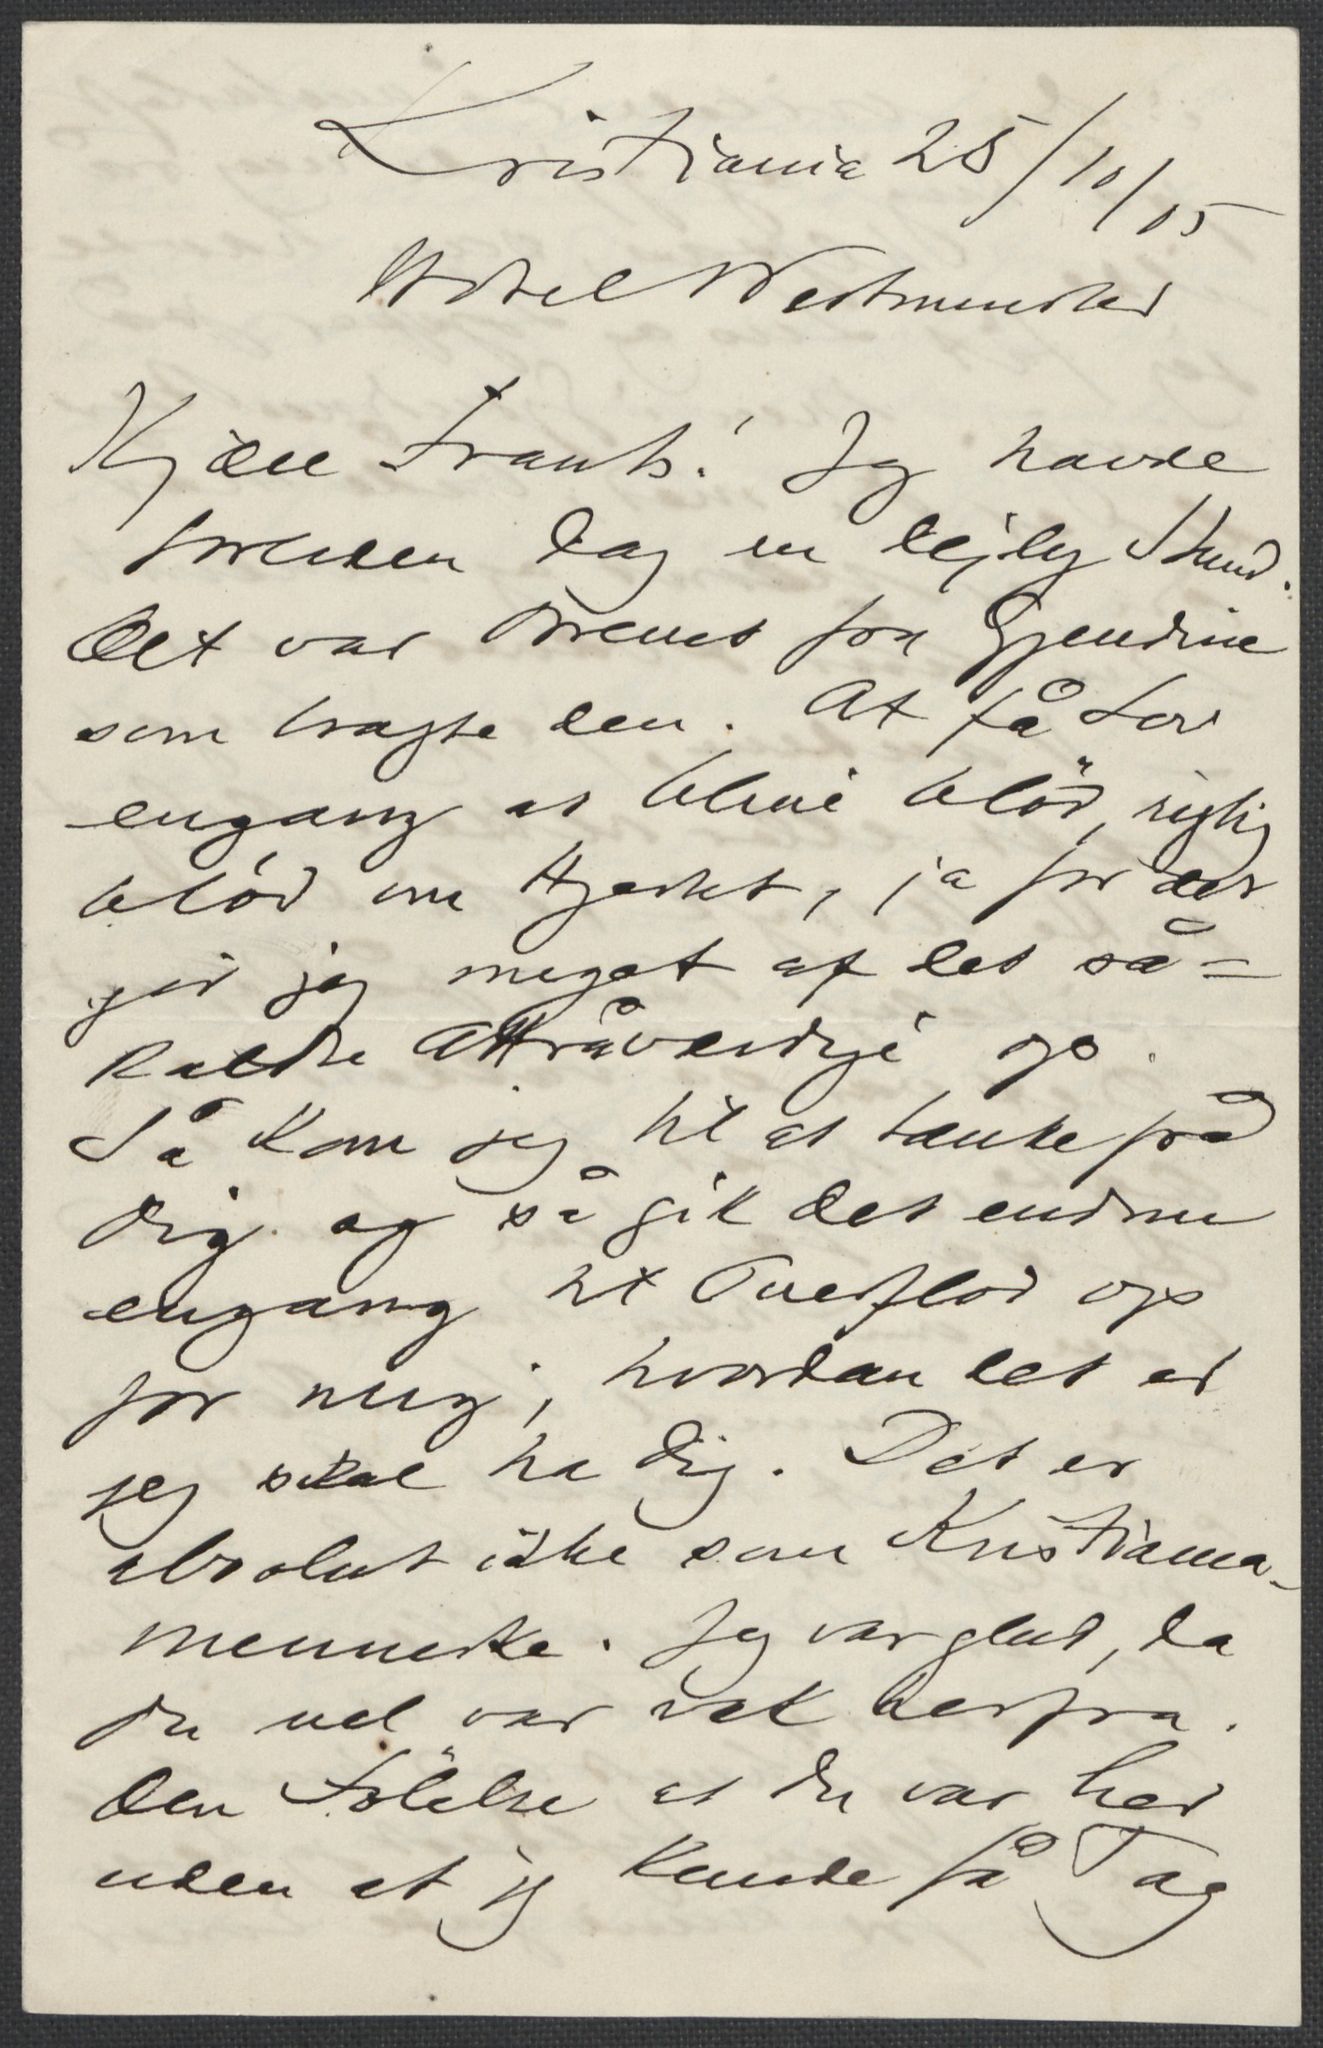 Kristiania 25/10/05
Hotel Westminster
Kjære Frants! Jeg havde
forleden Dag en dejlig Stund.
Det var Brevet fra Gjendine
som bragte den. At få Lov
engang at blive blöd, rigtig
blöd om Hjertet, ja for det
gir jeg meget af det så=
kaldte Attråværdige op.
Så kom jeg til at tænke på
Dig og så gik det endnu
engang til Overflod op
for mig, hvordan det er
jeg skal ha Dig. Det er
absolut ikke som Kristiania-
menneske. Jeg var glad, da
Du vel var vek herfra.
Den Fölelse at Du var her
uden at jeg kunde få Tag